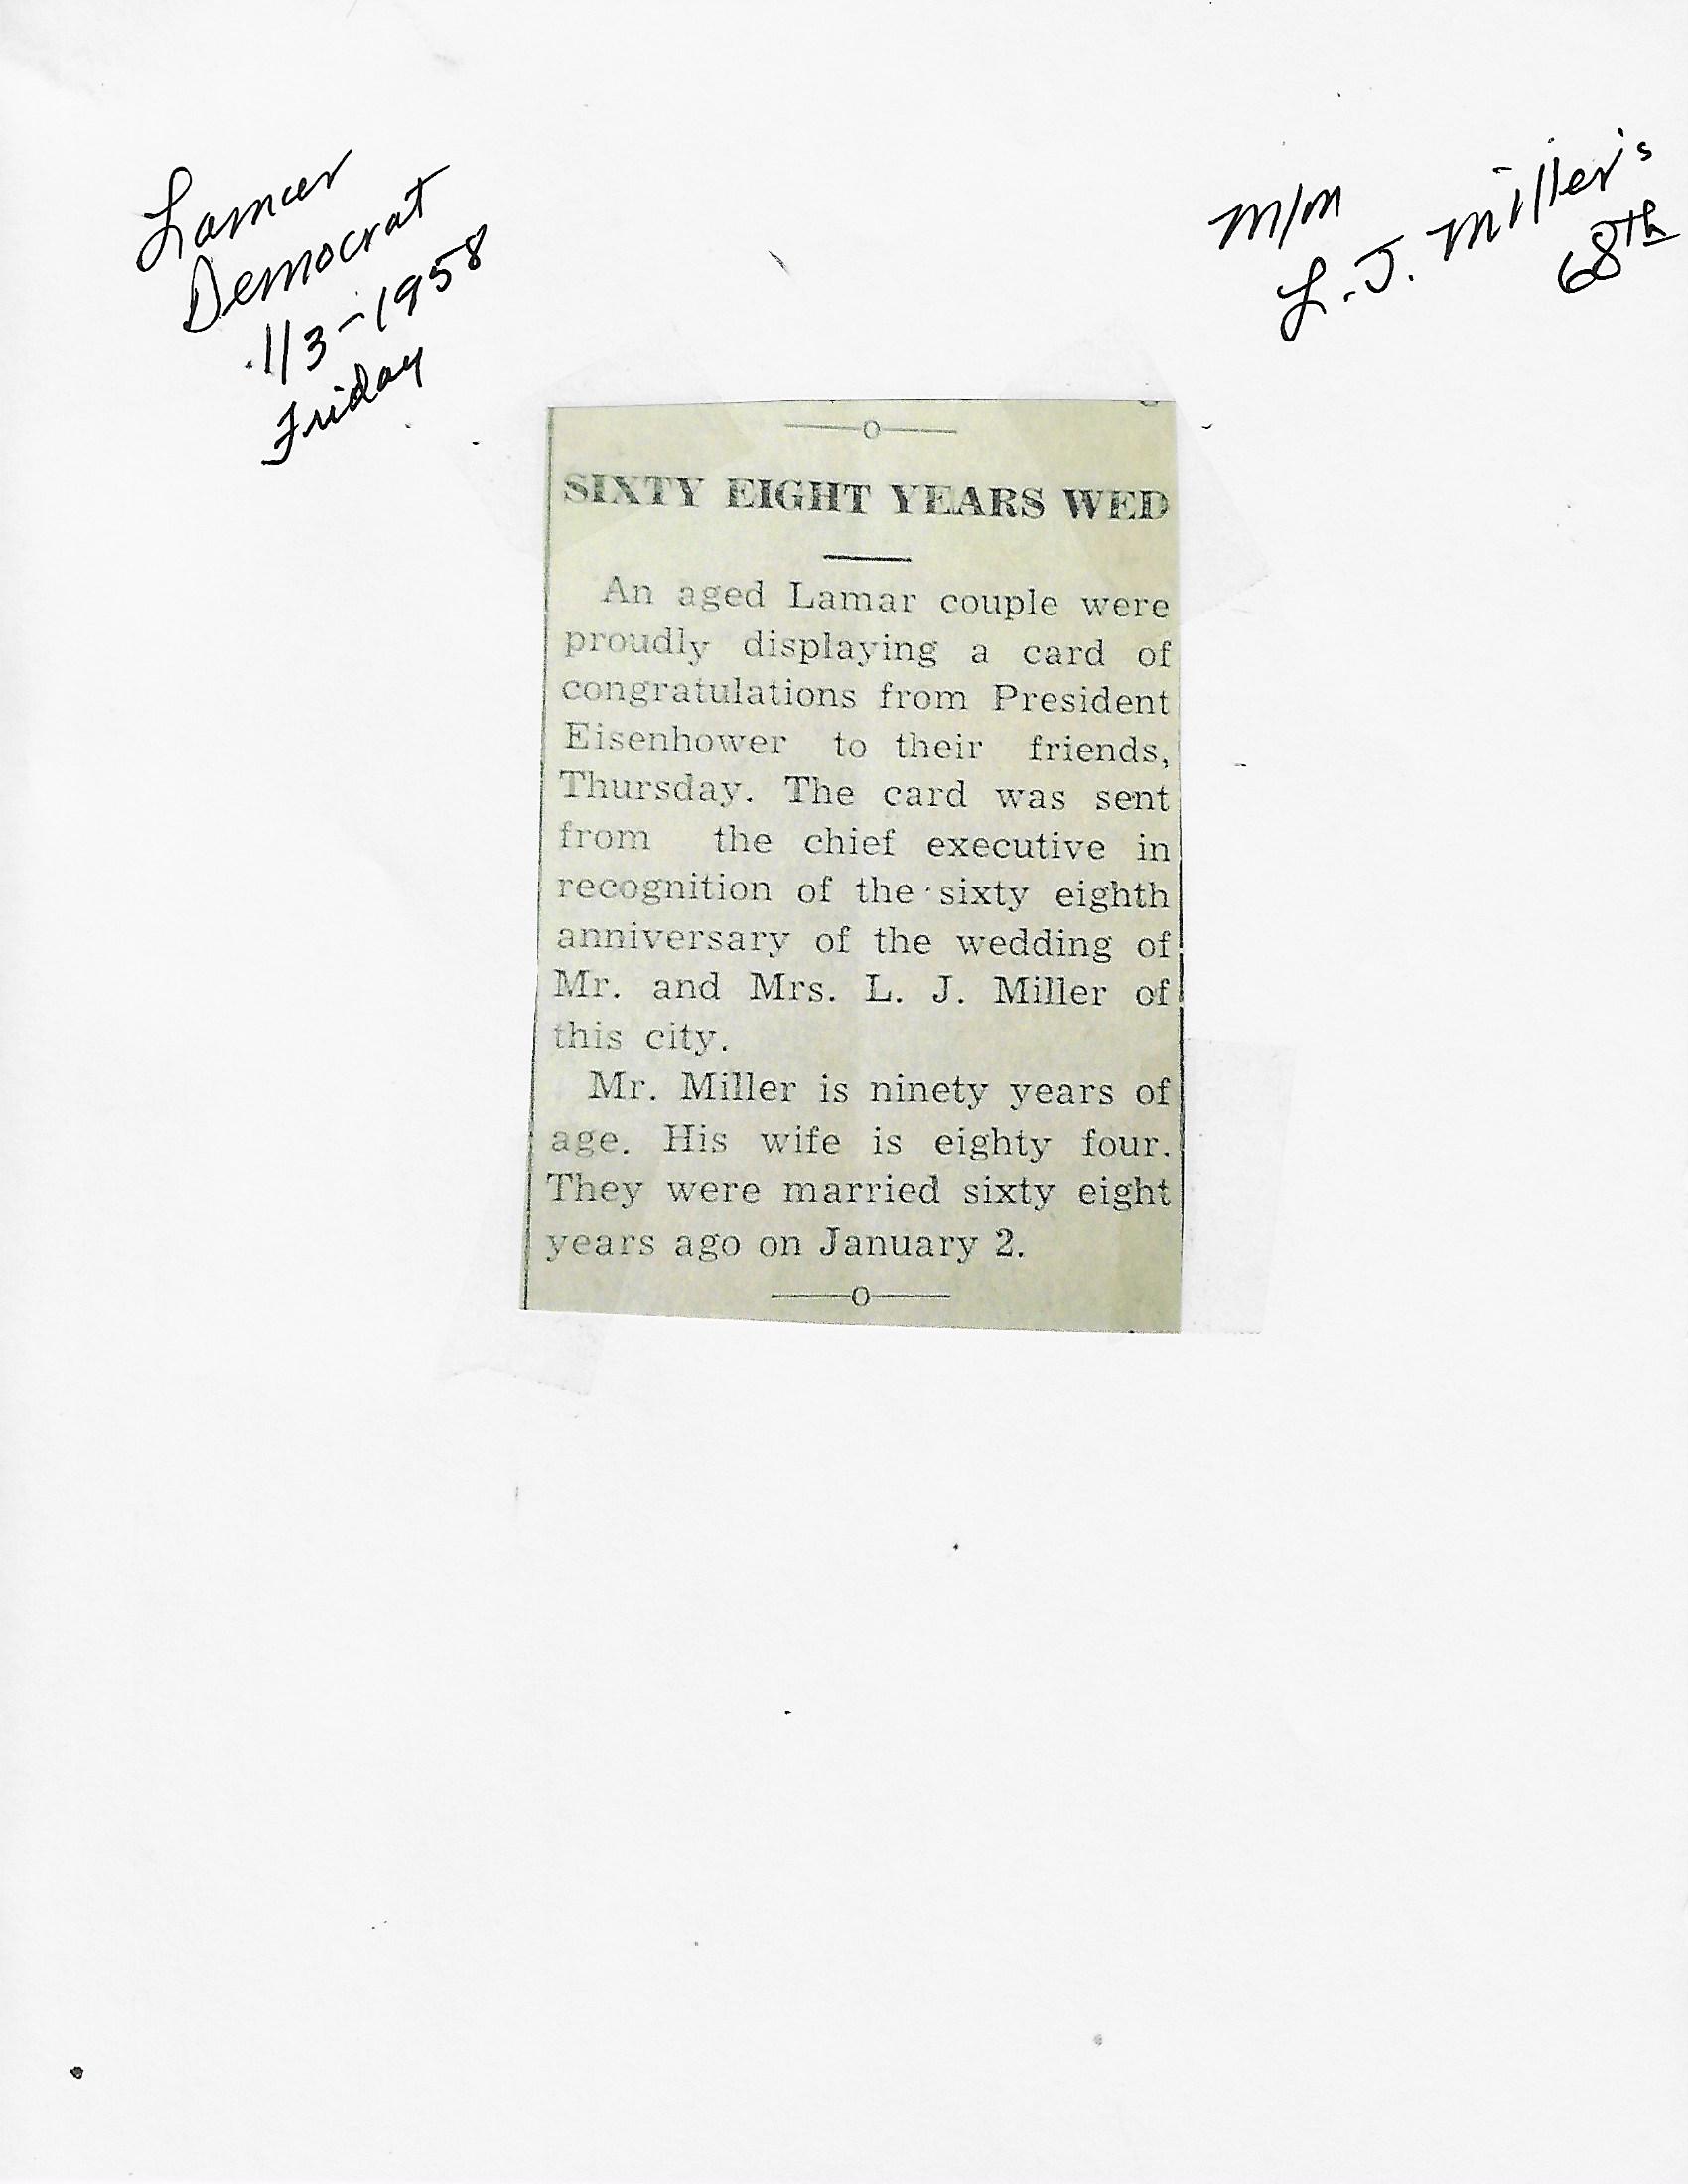 Lamar
Democrat
1/3-1958
Friday
M/M
L. J. Miller's
68th
—o—
SIXTY EIGHT YEARS WED
An aged Lamar couple were
proudly displaying a card of
congratulations from President
Eisenhower to their friends,
Thursday. The card was sent
from the chief executive in
recognition of the sixty eighth
anniversary of the wedding of
Mr. and Mrs. L. J. Miller of
this city.
Mr. Miller is ninety years of
age. His wife is eighty four.
They were married sixty eight
years ago on January 2.
—o—